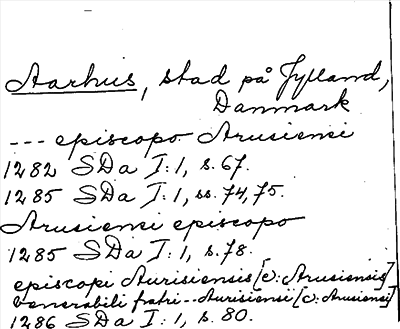 Aarhus, stad på Jylland,
Danmark
--- episcopo Arusiensi
1282 SDa I:1, s. 67.
1285 SDa I:1, ss. 74, 75.
Arusiensi episcopo
1285 SDa I:1, s. 78.
episcopi Aurisiensis [o: Arusiensis]
venerabili fratri -- Aurisiensi [o: Arusiensi]
1286 SDa I:1, s. 80.